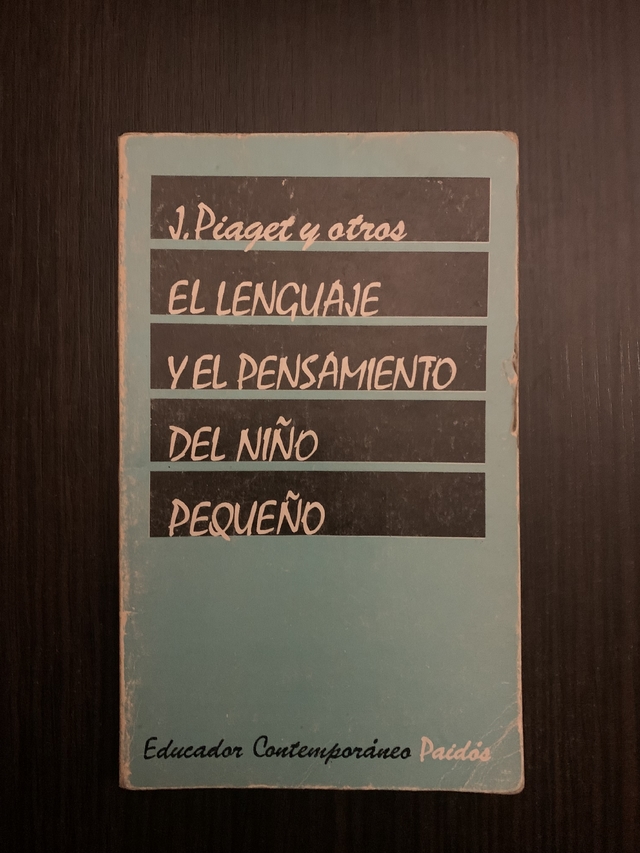 J. Piaget y otros
EL LENGUAJE
Y EL PENSAMIENTO
DEL NIÑO
PEQUEÑO
Educador Contemporáneo Paidós